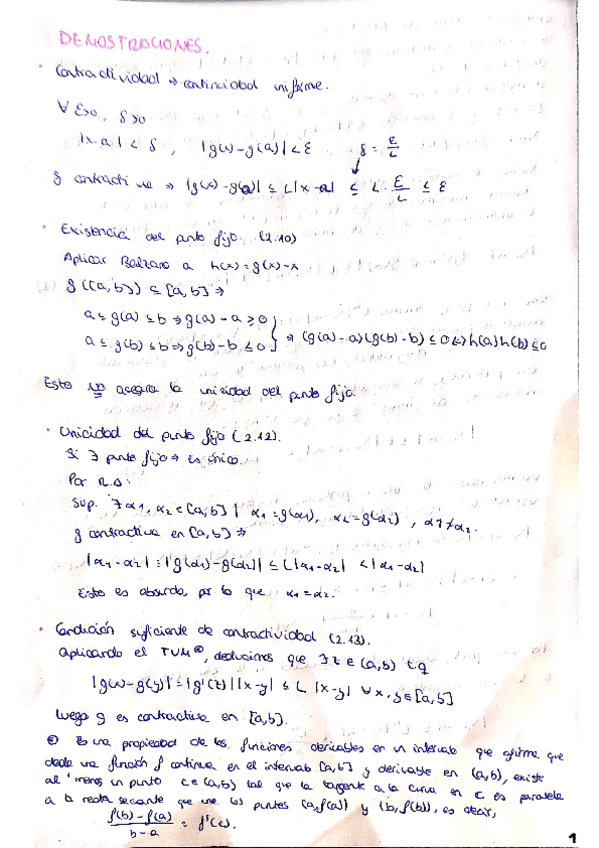 DEMOSTRACIONES.
· Contractividad → continuidad uniforme.
∀ ε>0, δ>0
|x-a| < δ , |g(x)-g(a)| < ε δ = ε/L
g contractiva ⇒ |g(x)-g(a)| ≤ L|x-a| ≤ L · ε/L ≤ ε
· Existencia del punto fijo. (2.10)
Aplicar Bolzano a h(x)=g(x)-x
g([a,b]) ⊆ [a,b] ⇒
a ≤ g(a) ≤ b ⇒ g(a)-a ≥ 0
a ≤ g(b) ≤ b ⇒ g(b)-b ≤ 0 } ⇒ (g(a)-a)(g(b)-b) ≤ 0 ⇔ h(a)h(b) ≤ 0
Esto no asegura la unicidad del punto fijo.
· Unicidad del punto fijo (2.12).
Si ∃ punto fijo ⇒ es único.
Por R.A:
Sup. ∃ α1, α2 ∈ [a,b] | α1 = g(α1), α2 = g(α2) , α1 ≠ α2.
g contractiva en [a,b] ⇒
|α1-α2| = |g(α1)-g(α2)| ≤ L|α1-α2| < |α1-α2|
Esto es absurdo, por lo que α1 = α2.
· Condición suficiente de contractividad (2.13).
Aplicando el TVM⊛, deducimos que ∃ z ∈ (a,b) t.q
|g(x)-g(y)| = |g'(z)| |x-y| ≤ L |x-y| ∀ x,y ∈ [a,b]
luego g es contractiva en [a,b].
⊛ Es una propiedad de las funciones derivables en un intervalo que afirma que
dada una función f continua en el intervalo [a,b] y derivable en (a,b), existe
al menos un punto c ∈ (a,b) tal que la tangente a la curva en c es paralela
a la recta secante que une los puntos (a,f(a)) y (b,f(b)), es decir,
f(b)-f(a)/b-a = f'(c).
1